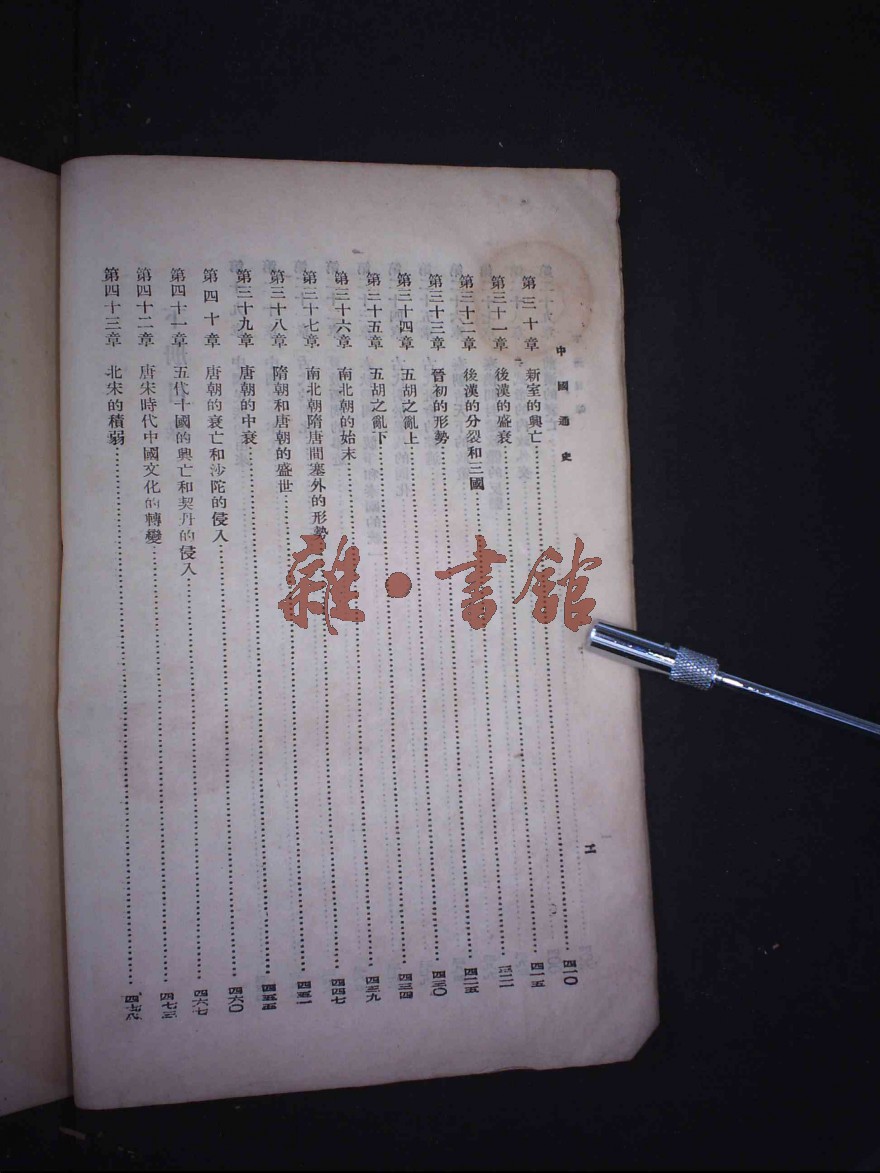 中國通史
二
第三十章 新室的興亡……四一〇
第三十一章 後漢的盛衰……四一五
第三十二章 後漢的分裂和三國……四二一
第三十三章 晉初的形勢……四二五
第三十四章 五胡之亂上……四三〇
第三十五章 五胡之亂下……四三四
第三十六章 南北朝的始末……四三九
第三十七章 南北朝隋唐間塞外的形勢……四四七
第三十八章 隋朝和唐朝的盛世……四五一
第三十九章 唐朝的中衰……四五五
第四十章 唐朝的衰亡和沙陀的侵入……四六〇
第四十一章 五代十國的興亡和契丹的侵入……四六七
第四十二章 唐宋時代中國文化的轉變……四七三
第四十三章 北宋的積弱……四七八
雜·書館